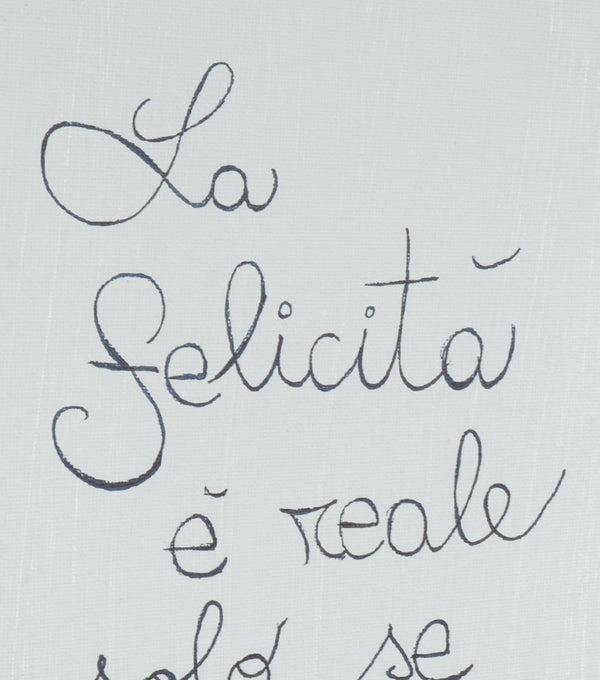 La
felicità
è reale
solo se